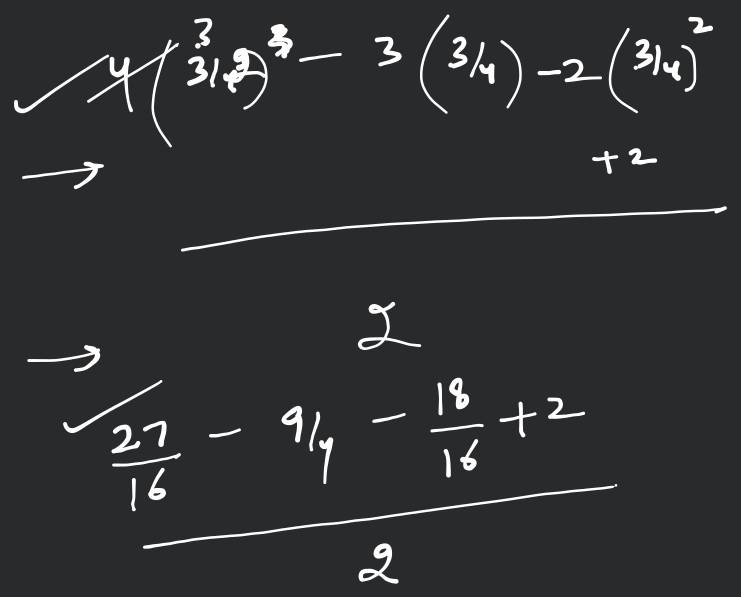 ✓ 4 (3/4)³ - 3 (3/4) - 2 (3/4)²
→ + 2
2
→
✓ 27/16 - 9/4 - 18/16 + 2
2